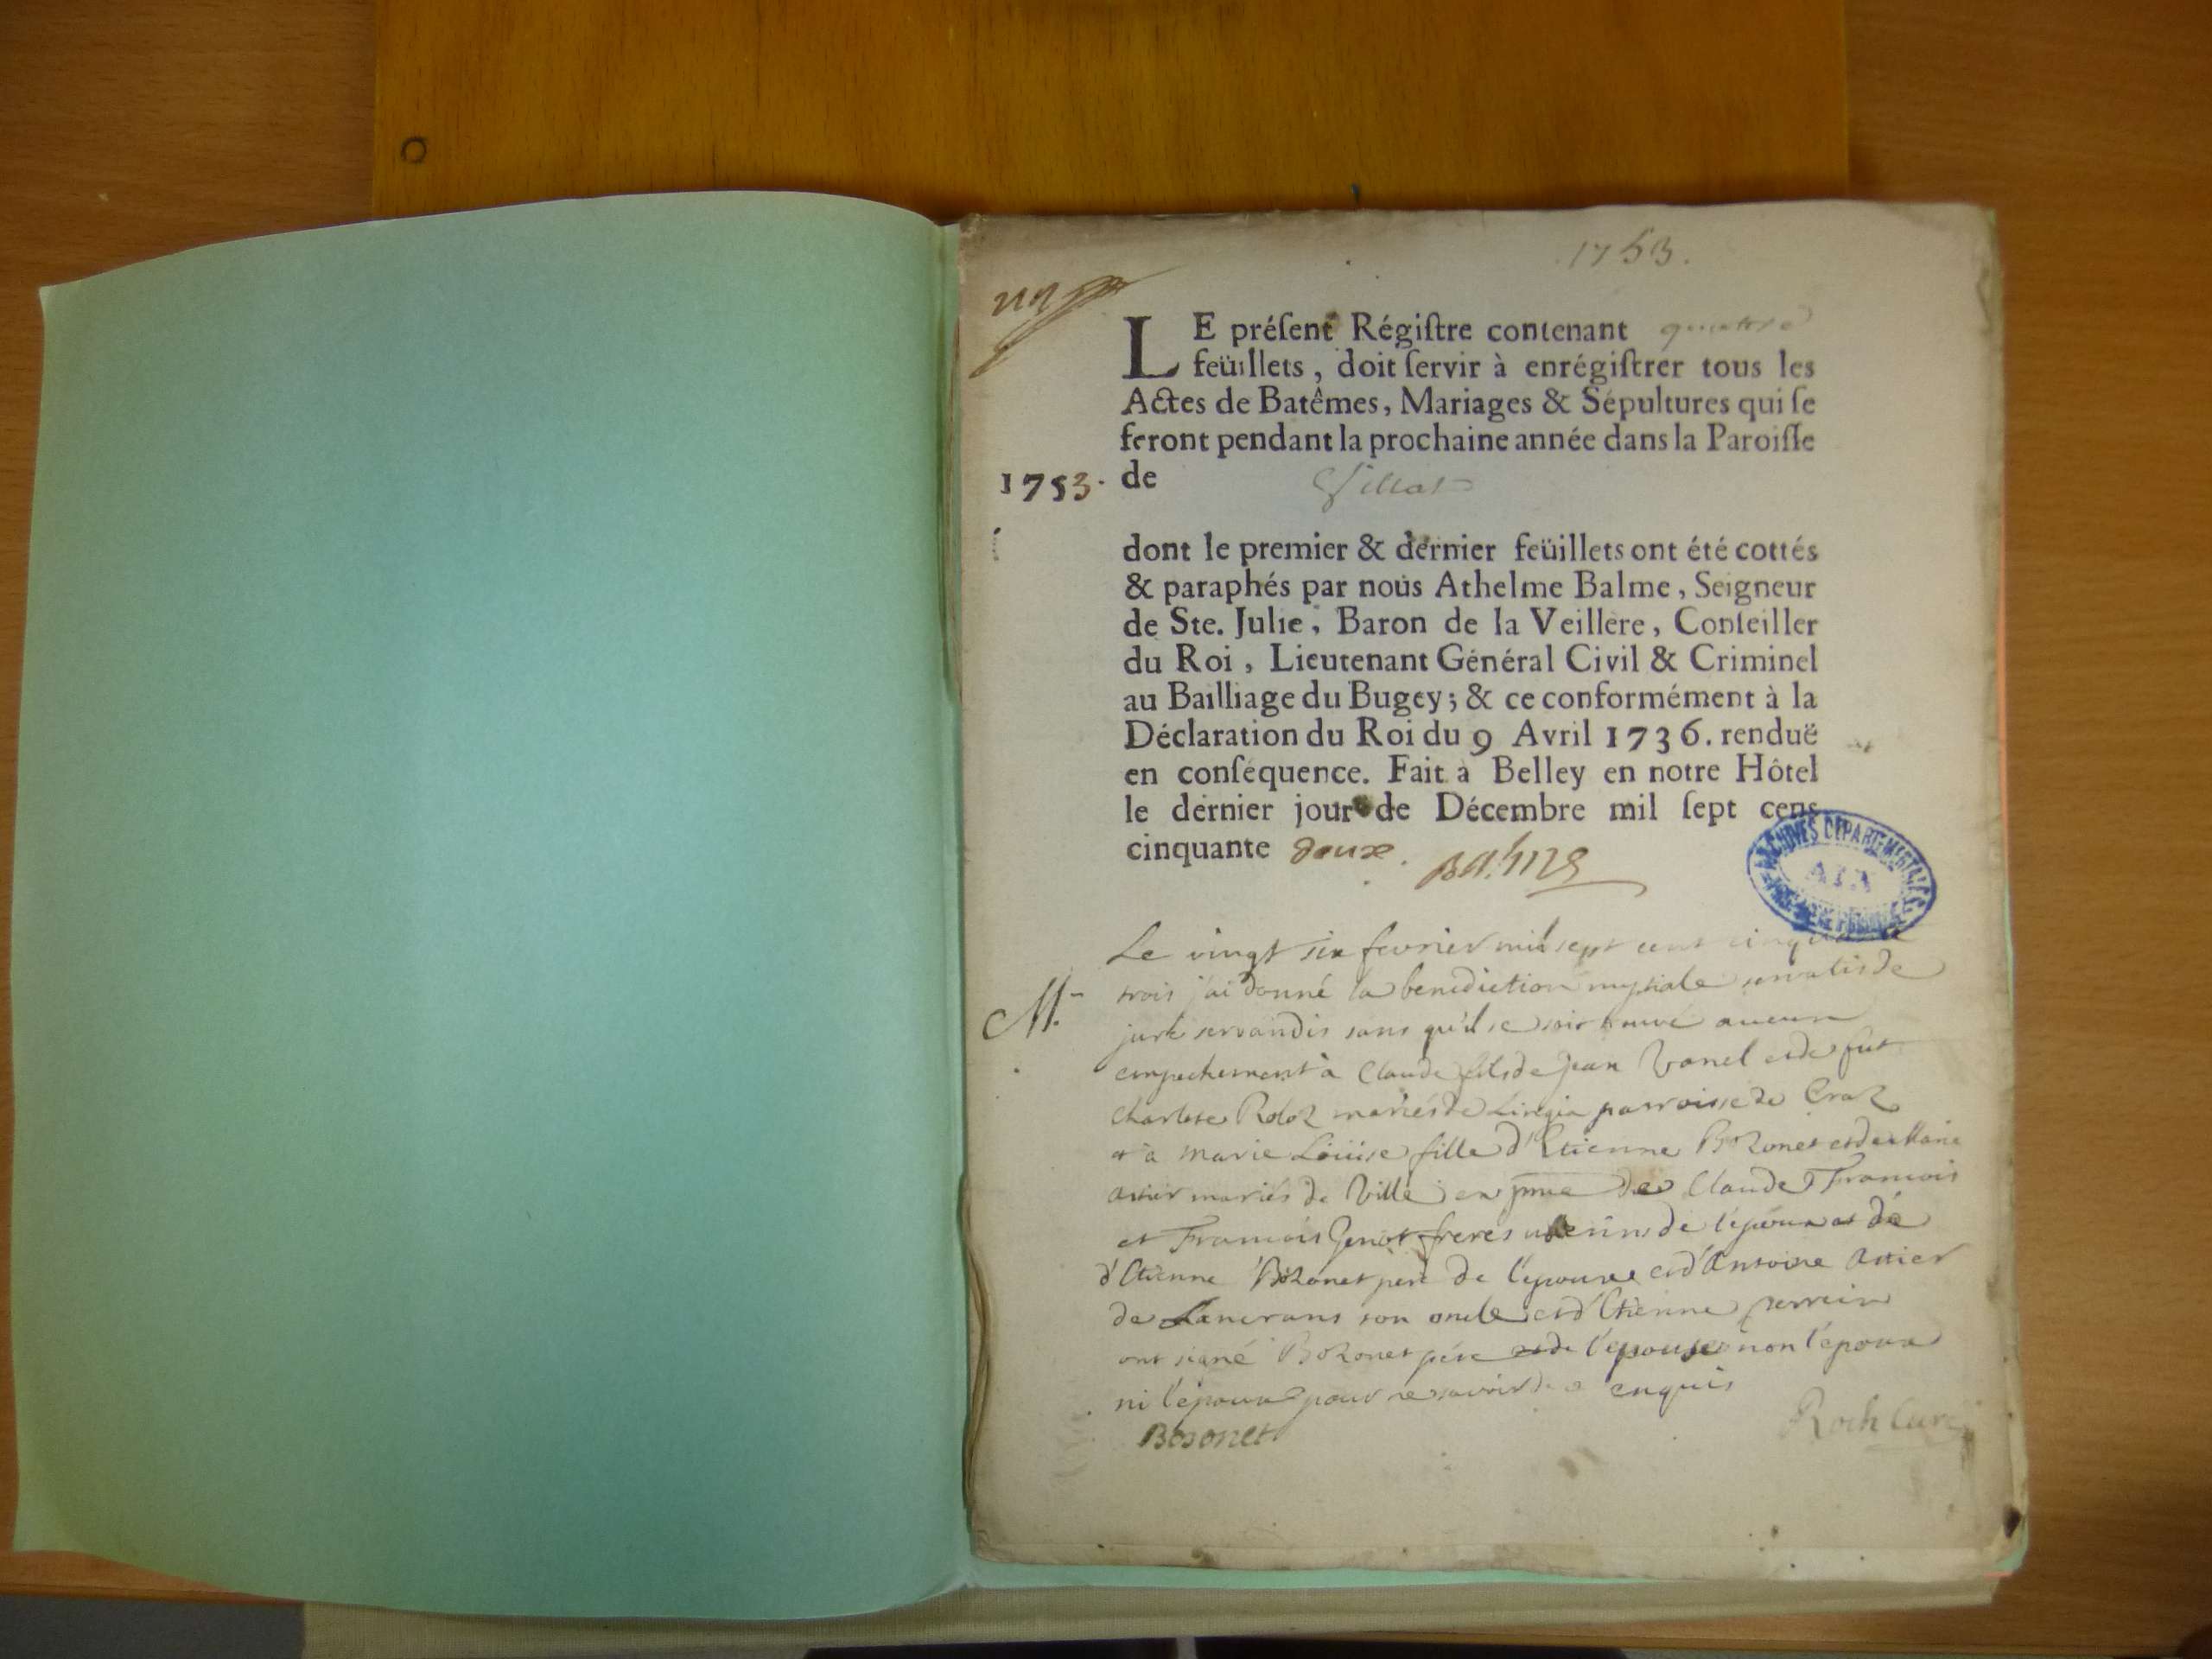 1753.
un
LE préſent Régiſtre contenant quatre
feüillets, doit ſervir à enrégiſtrer tous les
Actes de Batêmes, Mariages & Sépultures qui ſe
feront pendant la prochaine année dans la Paroiſſe
1753. de Villat
dont le premier & dernier feüillets ont été cottés
& paraphés par nous Athelme Balme, Seigneur
de Ste. Julie, Baron de la Veillere, Conſeiller
du Roi, Lieutenant Général Civil & Criminel
au Bailliage du Bugey; & ce conformément à la
Déclaration du Roi du 9 Avril 1736. renduë
en conſéquence. Fait à Belley en notre Hôtel
le dernier jour de Décembre mil ſept cens
cinquante deux. Balme
ARCHIVES DEPARTEMENTALES
AIN
Le vingt six fevrier mil sept cent cinquante
M. trois j'ai donné la benediction nuptiale servatis de
jure servandis sans qu'il se soit trouvé aucun
empechement à Claude fils de jean Vanel et de fut
Charlote Roloz mariés de Lingia parroisse de Craz
et à marie Loüise fille d'Etienne Bozonet et de Marie
mariés de Ville en pnce de Claude François
et François Genot freres uterins de l'époux et de
d'Etienne Bozonet pere de l'epouse et d'Antoine
de Lancrans son oncle et d'Etienne perrein
ont signé Bozonet pére de l'epouse non l'époux
ni l'épouse pour ne savoir de ce enquis
Bosonet Roch Curé